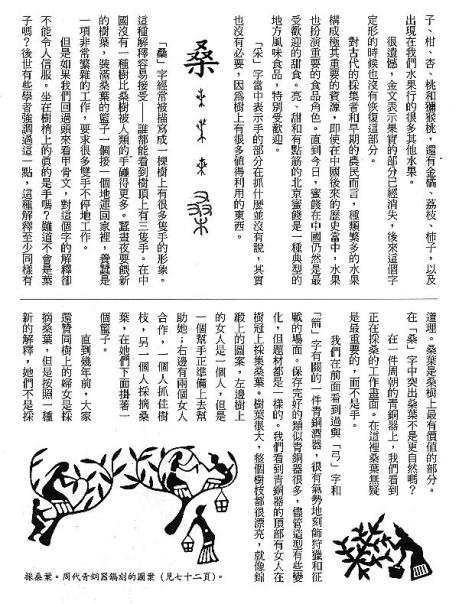 子、柑、杏、桃和獼猴桃，還有金橘、荔枝、柿子，以及
出現在我們水果行的很多其他水果。
很遺憾，金文表示果實的部分已經消失，後來這個字
定形的時候也沒有恢復這部分。
對古代的採集者和早期的農民而言，種類繁多的水果
構成極其重要的資源，即使在中國後來的歷史當中，水果
也扮演重要的食品角色。直到今日，蜜餞在中國仍然是最
受歡迎的甜食。亮、甜和有點筋的北京蜜餞是一種典型的
地方風味食品，特別受歡迎。
「采」字當中表示手的部分在抓什麼並沒有說，其實
也沒有必要，因爲樹上有很多値得利用的東西。
桑
「桑」字經常被描寫成一棵樹上有很多隻手的形象。
這種解釋容易接受——誰都能看到樹頂上有三隻手。在中
國沒有一種樹比桑樹被人類的手碰得更多。蠶晝夜要餵新
的樹葉，裝滿桑葉的籃子一個接一個地運回家裡，養蠶是
一項非常繁雜的工作，要求很多雙手不停地工作。
但是如果我們回過頭來看甲骨文，對這個字的解釋卻
不能令人信服。坐在樹梢上的眞的是手嗎？難道不會是葉
子嗎？後世有些學者強調過這一點，這種解釋至少同樣有
道理。桑葉是桑樹上最有價値的部分。
在「桑」字中突出桑葉不是更自然嗎？
在一件周朝的青銅器上，我們看到
正在採桑的工作畫面。在這裡桑葉無疑
是最重要的，而不是手。
我們在前面看到過與「弓」字和
「箭」字有關的一件青銅酒器，很有氣勢地刻飾狩獵和征
戰的場面。保存完好的類似青銅器很多，儘管造型有些變
化，但題材都是一樣的。我們看到青銅器的頂部有女人在
樹冠上採集桑葉。樹葉很大，整個樹枝都很漂亮，就像錦
緞上的圖案。左邊樹上
的女人是一個人，但是
一個幫手正準備上去幫
助她；右邊有兩個女人
合作，一個人抓住樹
枝，另一個人採摘桑
葉，在她們下面掛著一
個籃子。
直到幾年前，大家
還贊同樹上的婦女是採
摘桑葉，但是按照一種
新的解釋，她們不是採
採桑葉。周代青銅器鐫刻的圖案（見七十二頁）。